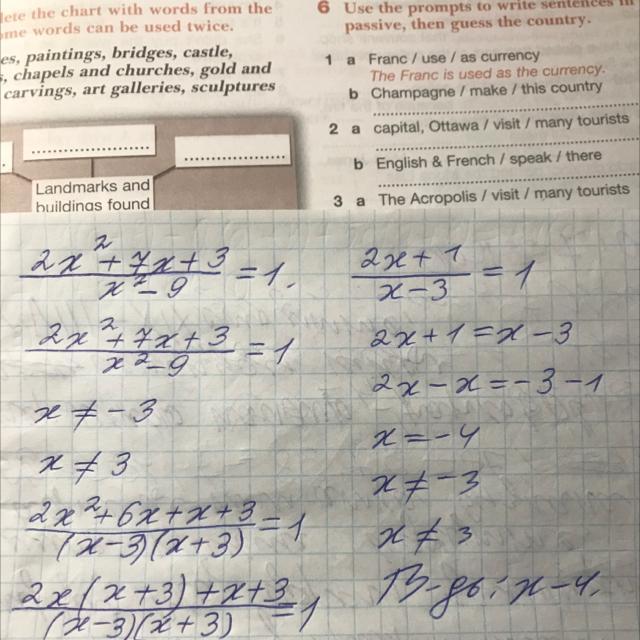 lete the chart with words from the
ome words can be used twice.
es, paintings, bridges, castle,
s, chapels and churches, gold and
carvings, art galleries, sculptures
Landmarks and
buildings found
6 Use the prompts to write sentences in
passive, then guess the country.
1 a Franc / use / as currency
The Franc is used as the currency.
b Champagne / make / this country
2 a capital, Ottawa / visit / many tourists
b English & French / speak / there
3 a The Acropolis / visit / many tourists
(2x² + 7x + 3)/(x² - 9) = 1.
(2x² + 7x + 3)/(x² - 9) = 1
x ≠ -3
x ≠ 3
(2x² + 6x + x + 3)/((x-3)(x+3)) = 1
(2x(x+3) + x+3)/((x-3)(x+3)) = 1
(2x+1)/(x-3) = 1
2x+1 = x-3
2x-x = -3-1
x = -4
x ≠ -3
x ≠ 3
В-дь: x-4.